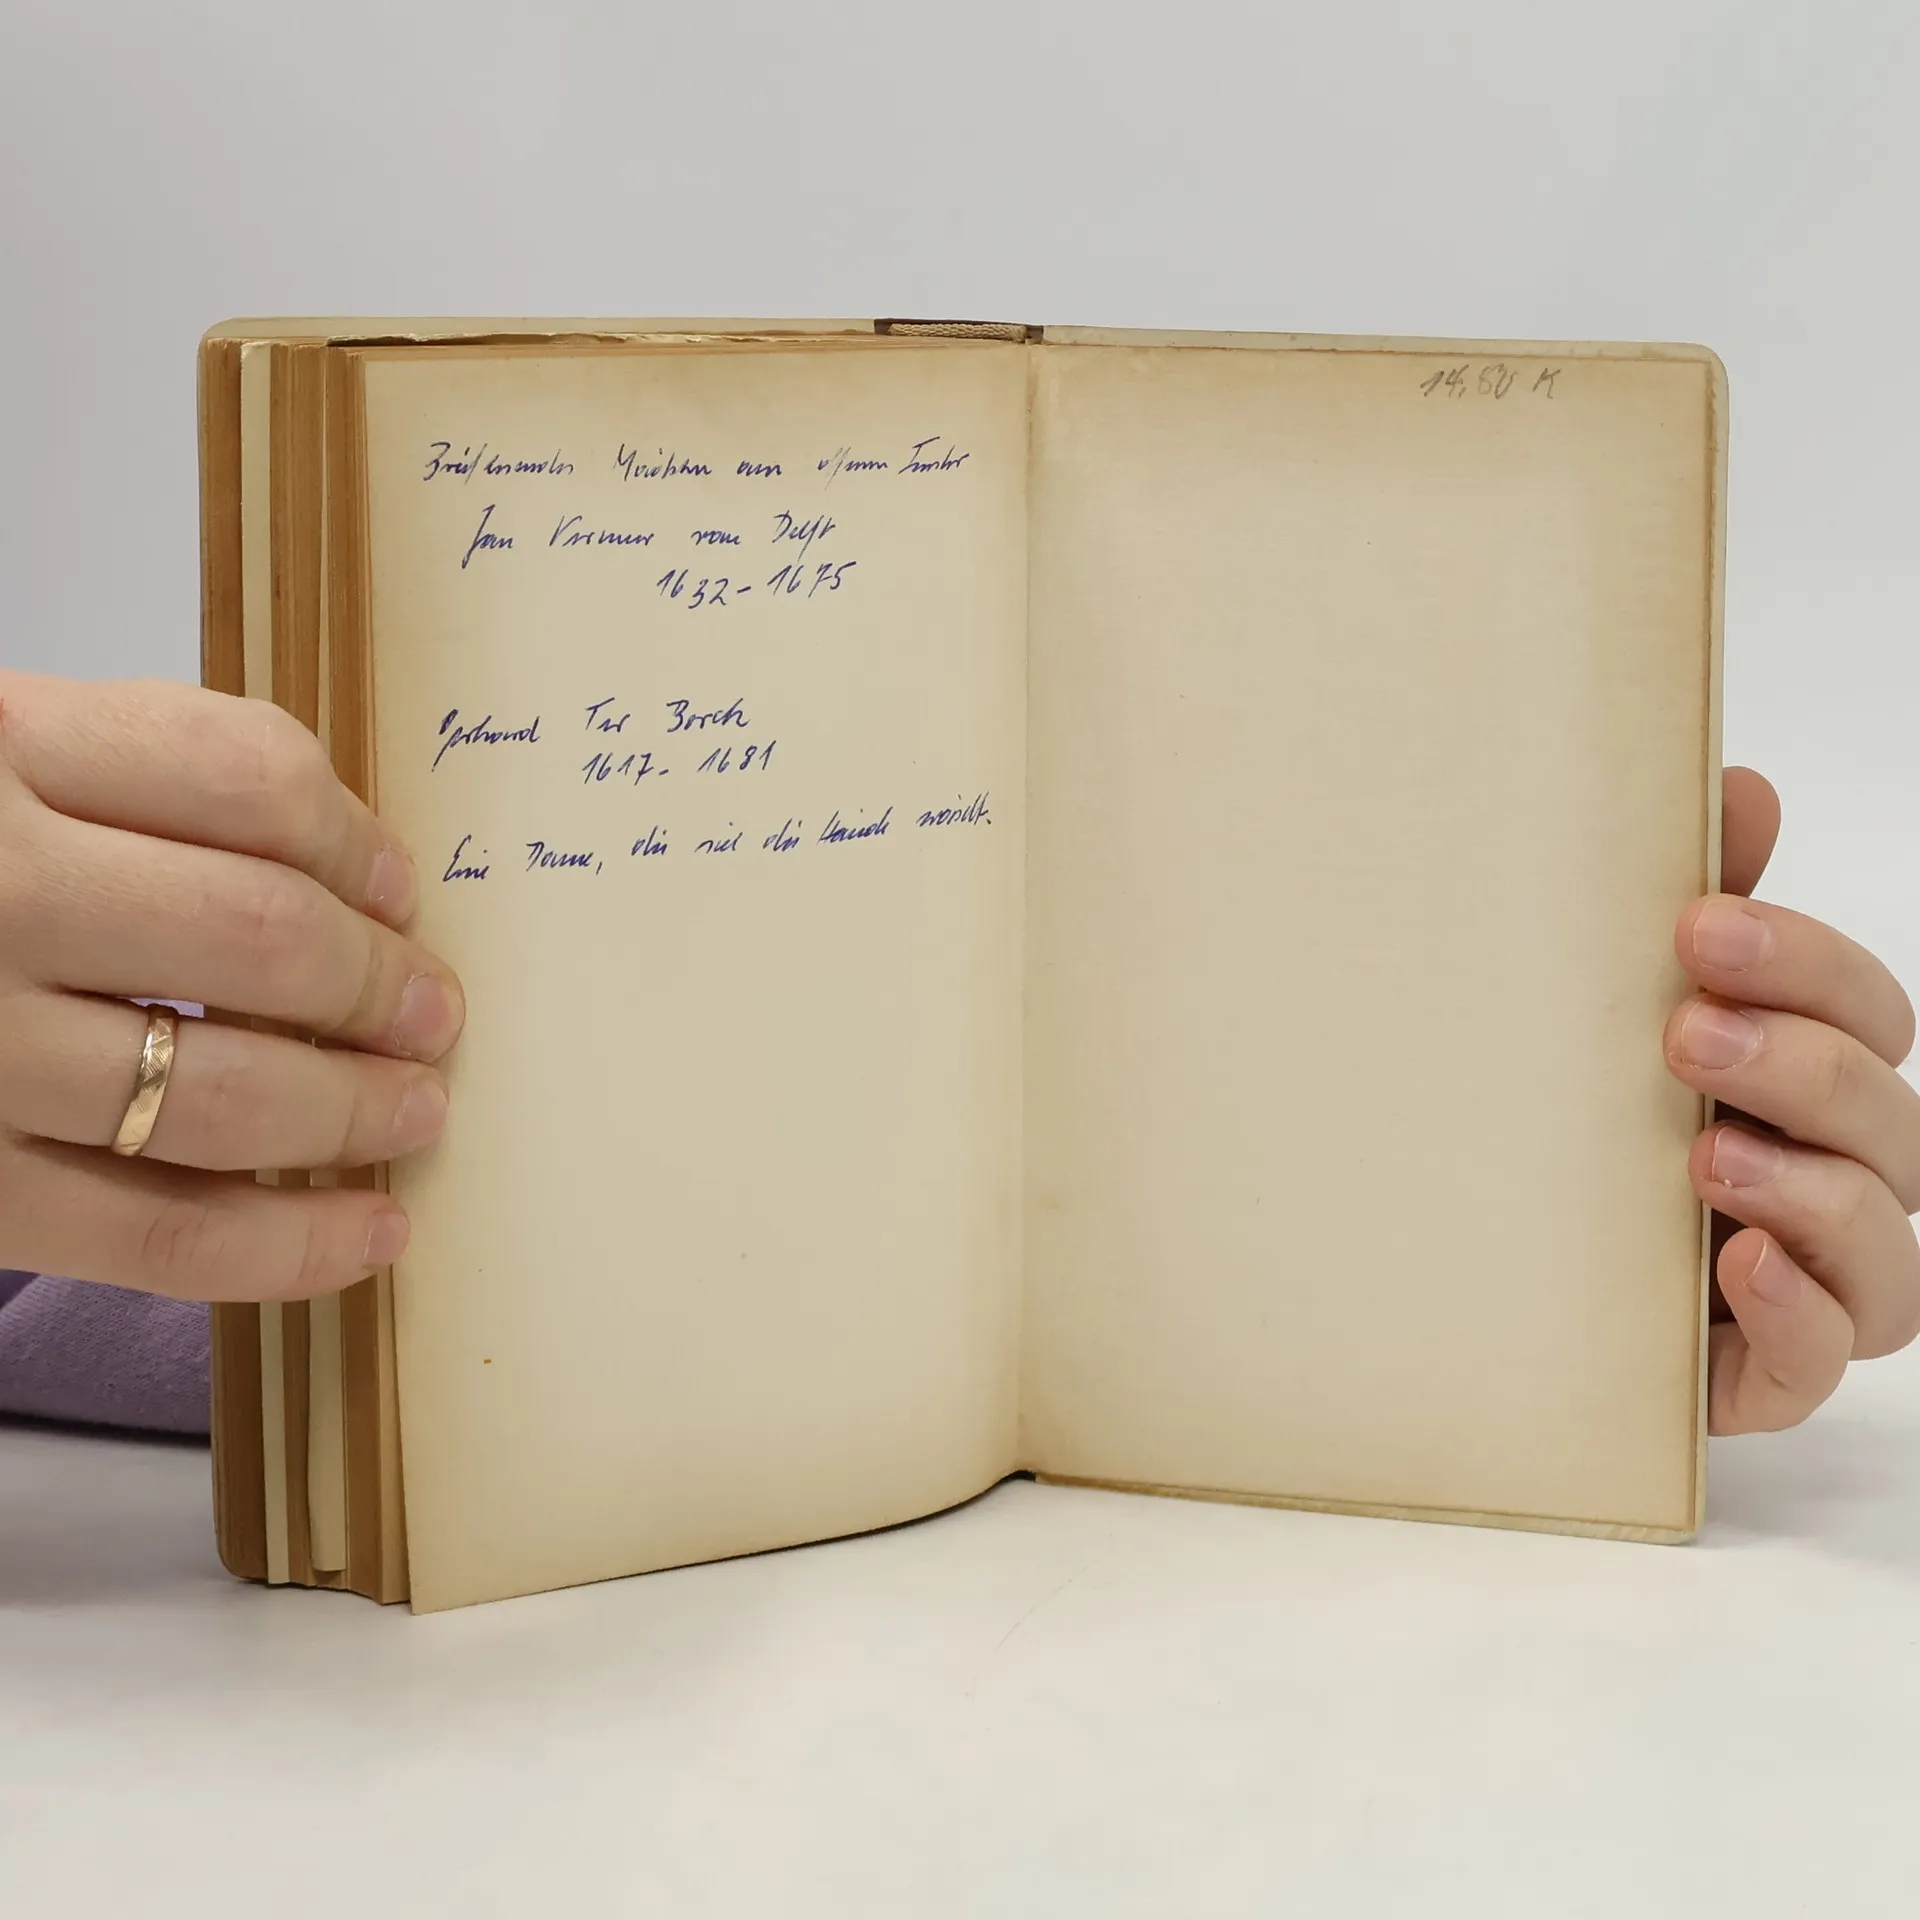 Brieflesendes Mädchen am offenen Fenster
Jan Vermeer van Delft
1632 - 1675
Gerhard Ter Borch
1617 - 1681
Eine Dame, die sich die Hände wäscht.
14,80 K